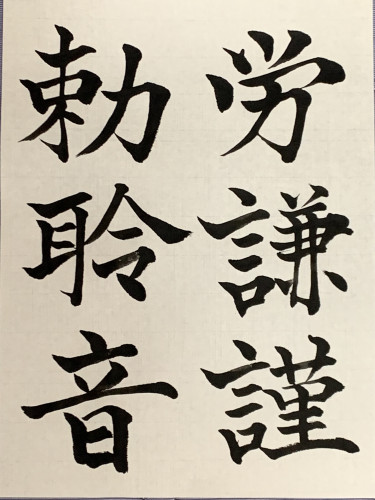 労謙謹
勅聆音